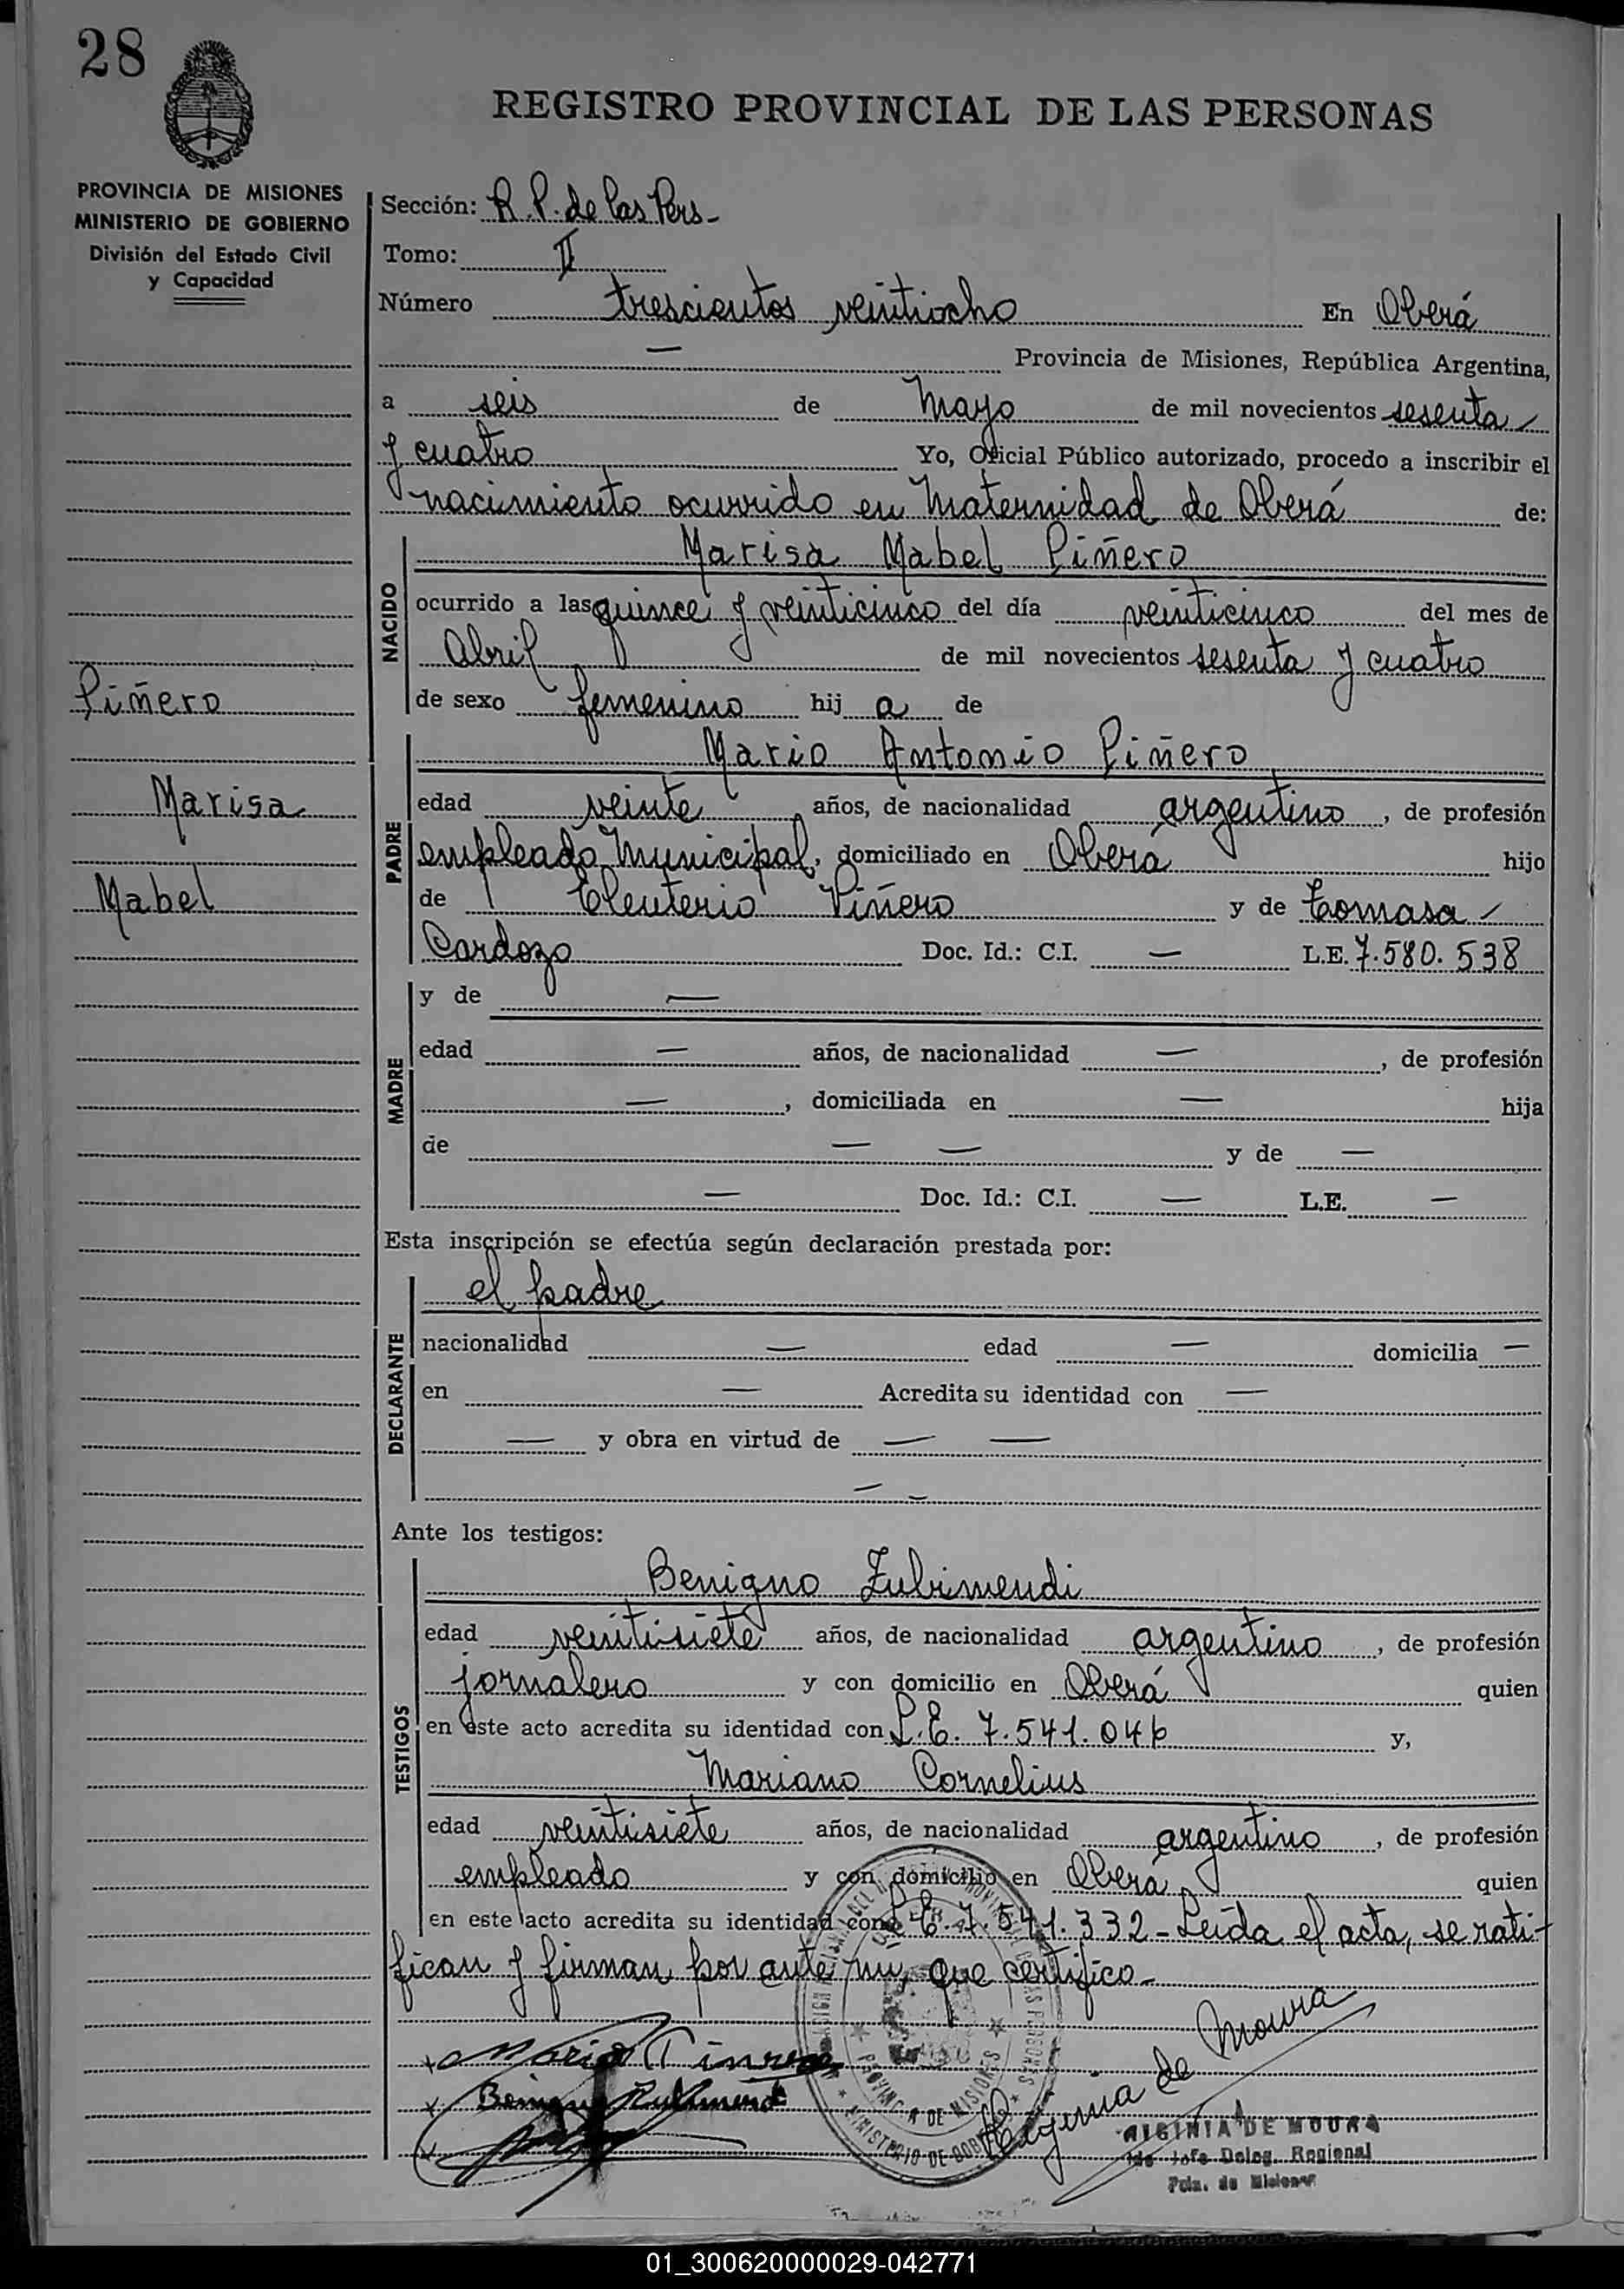 28
REGISTRO PROVINCIAL DE LAS PERSONAS
PROVINCIA DE MISIONES
MINISTERIO DE GOBIERNO
División del Estado Civil
y Capacidad
Piñero
Marisa
Mabel
Sección: R. P. de las Pers-
Tomo: II
Número trescientos veintiocho En Oberá
— Provincia de Misiones, República Argentina,
a seis de Mayo de mil novecientos sesenta
y cuatro Yo, Oficial Público autorizado, procedo a inscribir el
nacimiento ocurrido en Maternidad de Oberá de:
NACIDO
Marisa Mabel Piñero
ocurrido a las quince y veinticinco del día veinticinco del mes de
Abril de mil novecientos sesenta y cuatro
de sexo femenino hij a de
PADRE
Mario Antonio Piñero
edad veinte años, de nacionalidad argentino, de profesión
empleado Municipal, domiciliado en Oberá hijo
de Eleuterio Piñero y de Tomasa
Cardozo Doc. Id.: C.I. — L.E. 7.580.538
MADRE
y de —
edad — años, de nacionalidad —, de profesión
—, domiciliada en — hija
de — — y de —
— Doc. Id.: C.I. — L.E. —
Esta inscripción se efectúa según declaración prestada por:
DECLARANTE
el padre
nacionalidad — edad — domicilia —
en — Acredita su identidad con —
— y obra en virtud de — —
— —
Ante los testigos:
TESTIGOS
Benigno Zubimendi
edad veintisiete años, de nacionalidad argentino, de profesión
jornalero y con domicilio en Oberá quien
en este acto acredita su identidad con L.E. 7.541.046 y,
Mariano Cornelius
edad veintisiete años, de nacionalidad argentino, de profesión
empleado y con domicilio en Oberá quien
en este acto acredita su identidad con L.E. 7.541.332 - Leída el acta, se rati-
fican y firman por ante mí, que certifico-
Mario Piñero
Benigno Zubimendi
de Moura
PROVINCIA DE MISIONES
MINISTERIO DE GOBIERNO
DE MOURA
Jefe Deleg. Regional
Pcia. de Misiones
01_300620000029-042771